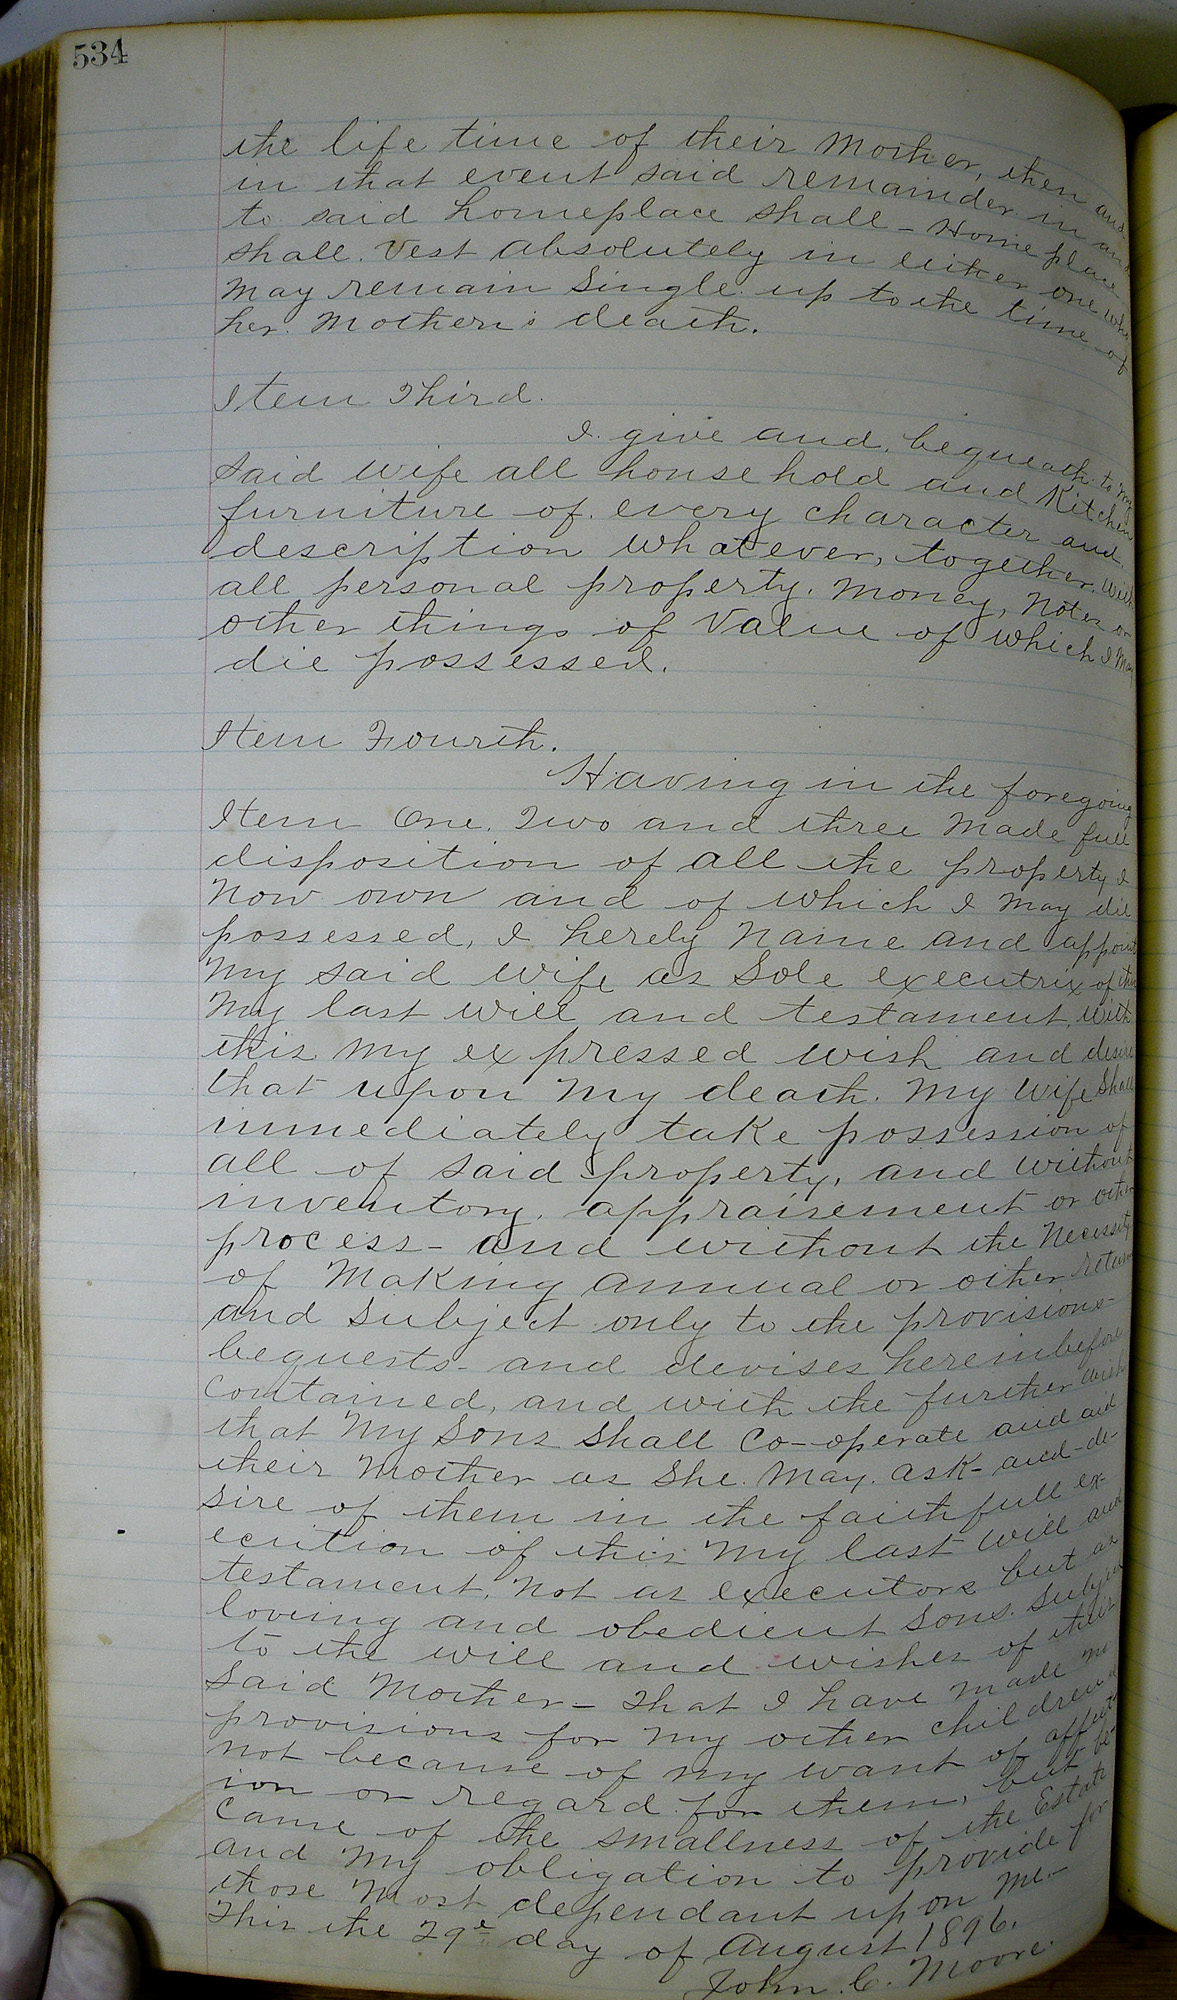 534
the life time of their Mother, then and
in that event said remainder in and
to said homeplace shall - Home place
shall. Vest absolutely in either one who
May remain Single up to the time of
her. Mother's death.
Item Third.
I. give and, bequeath to my
said wife all household and Kitchen
furniture of. every character and.
description whatever, together. with
all personal property. Money, Notes or
other things of Value of which I May
die possessed.
Item Fourth.
Having in the foregoing
Item One. Two and three Made full
disposition of all the property I
Now own and of which I May die
possessed, I hereby Name and appoint
My said wife as Sole executrix of this
My last will and testament, with
this my expressed wish and desire
that upon My death. My Wife Shall
immediately take possession of
all of said property, and without
inventory, appraisement or other
process - and without the Necessity
of Making annual or other returns
and Subject only to the provisions -
bequests - and devises hereinbefore
contained, and with the further wish
that My Sons Shall Co-operate and aid
their Mother as She. May. ask - and - de-
sire of them in the faithfull ex-
ecution of this My last Will and
testament, Not as executors but as
loving and obedient Sons. Subject
to the will and wishes of their
Said Mother - That I have Made no
provisions for My other children is
Not because of my want of affect-
ion or regard for them, but be-
cause of the smallness of the Estate
and My obligation to provide for
those Most dependant upon Me -
This the 29th day of August 1896.
John. C. Moore.